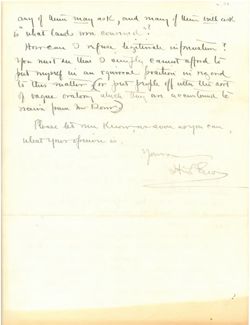 any of them may ask, and many of them will ask
to "what lands were acquired"?
How can I refuse legitimate information?
You must see that I simply cannot afford to
put myself in an equivocal position in regard
to this matter (or put people off with the sort
of vague oratory which they are accustomed to
receive from Mr
Please let me know as soon as you can
what your opinion is.
Yours